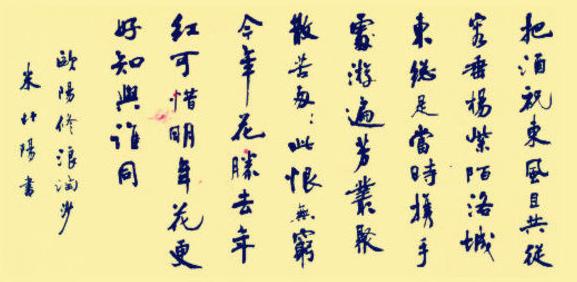 把酒祝東風且共從
容垂楊紫陌洛城
東總是當時携手
處游遍芳叢聚
散苦匆〻此恨無窮
今年花勝去年
紅可惜明年花更
好知與誰同
歐陽修浪淘沙
朱 陽書